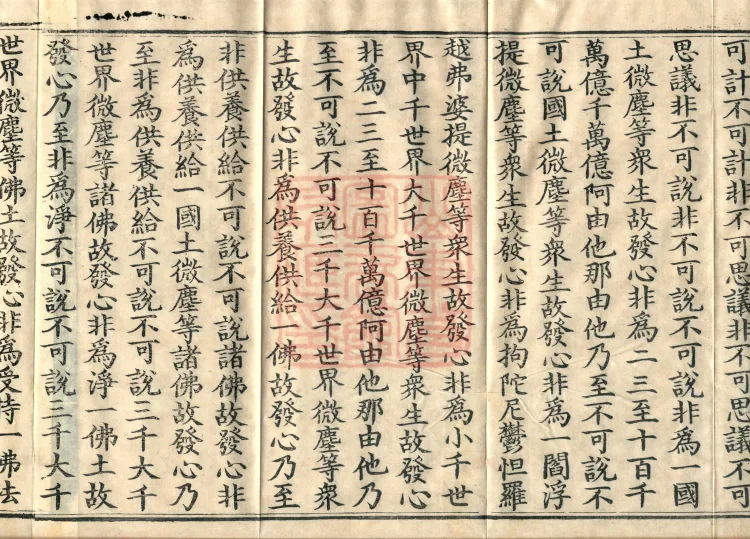 可計不可計非不可思議非不可思議不可
思議非不可說非不可說不可說非爲一國
土微塵等衆生故發心非爲二三至十百千
萬億千萬億阿由他那由他乃至不可說不
可說國土微塵等衆生故發心非爲一閻浮
提微塵等衆生故發心非爲拘陀尼鬱怛羅
越弗婆提微塵等衆生故發心非爲小千世
界中千世界大千世界微塵等衆生故發心
非爲二三至十百千萬億阿由他那由他乃
至不可說不可說三千大千世界微塵等衆
生故發心非爲供養供給一佛故發心乃至
非供養供給不可說不可說諸佛故發心非
爲供養供給一國土微塵等諸佛故發心乃
至非爲供養供給不可說不可說三千大千
世界微塵等諸佛故發心非爲淨一佛土故
發心乃至非爲淨不可說不可說三千大千
世界微塵等佛土故發心非爲受持一佛法